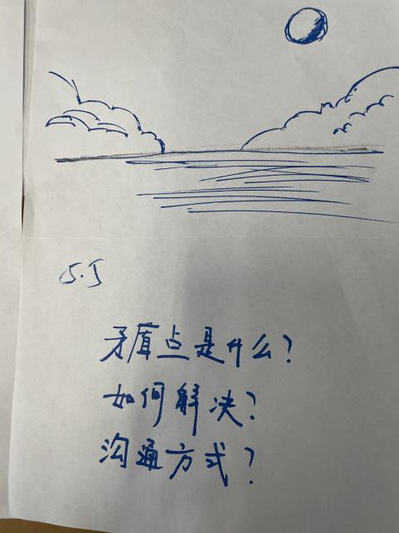 5.5
矛盾点是什么?
如何解决?
沟通方式?